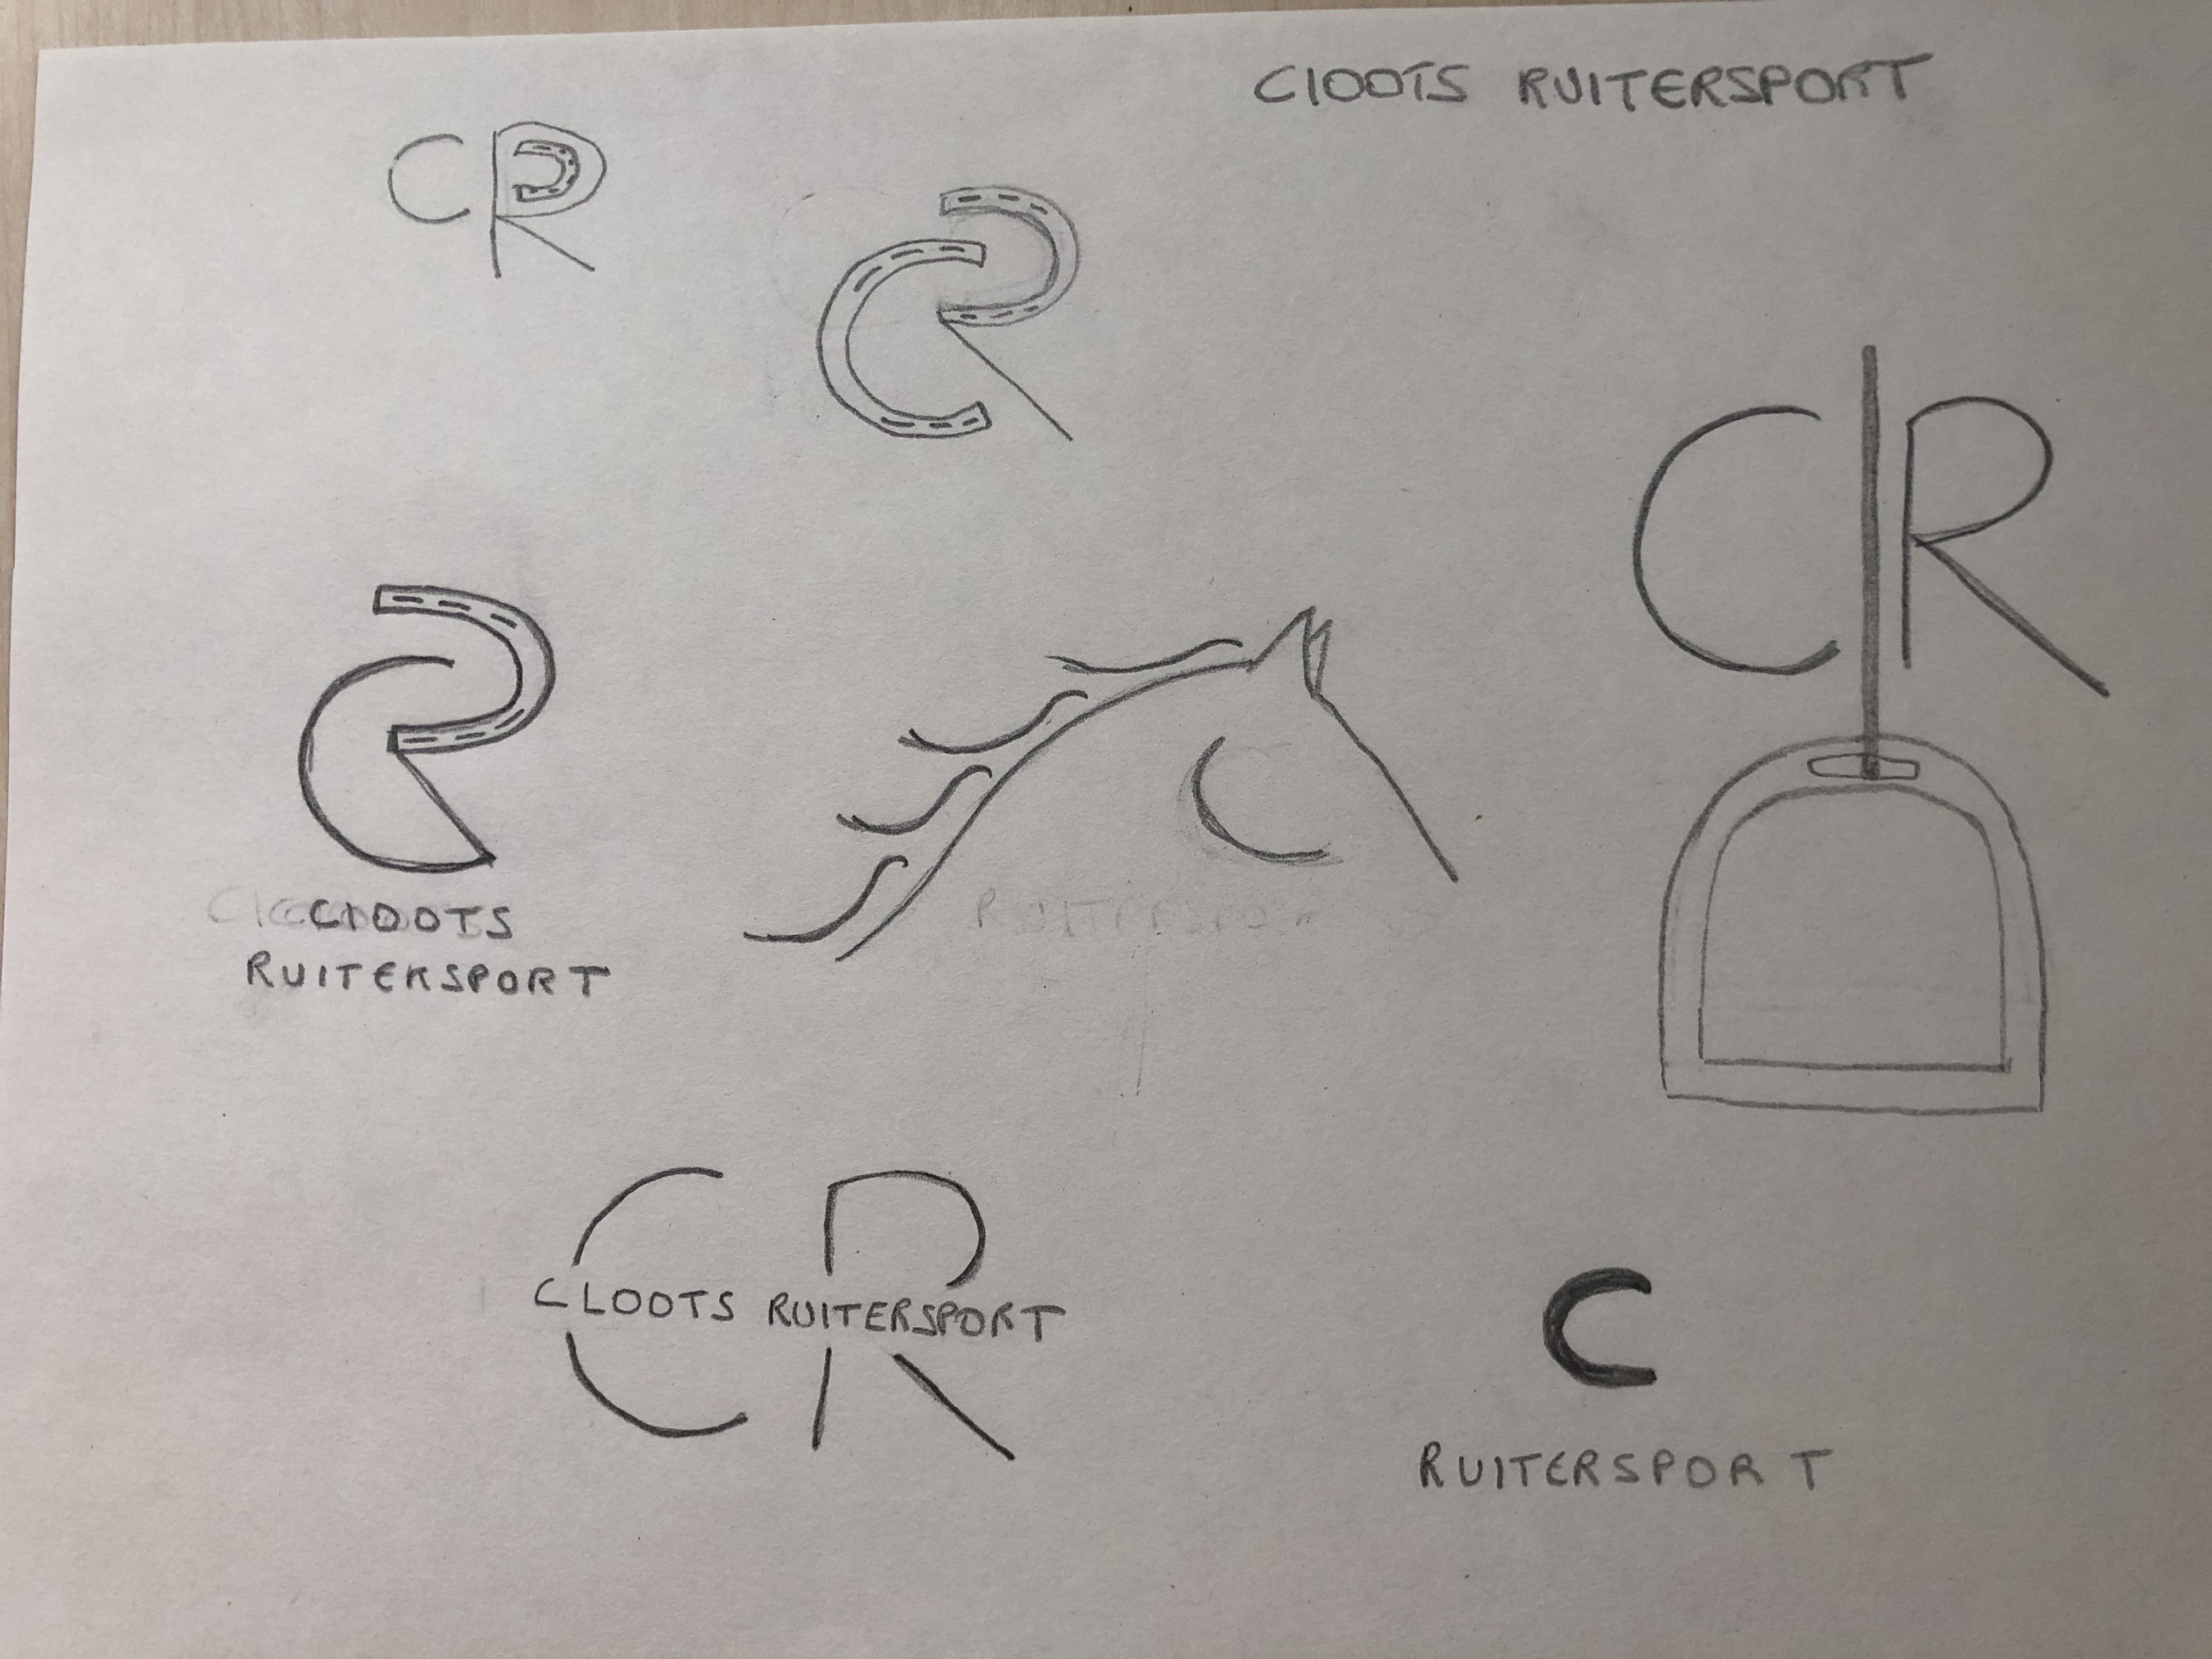 ClOOTS RUITERSPORT
CR
CR
CR
CR
ClOOTS
RUITERSPORT
C
RUITERSPO
CR
CLOOTS RUITERSPORT
C
RUITERSPORT